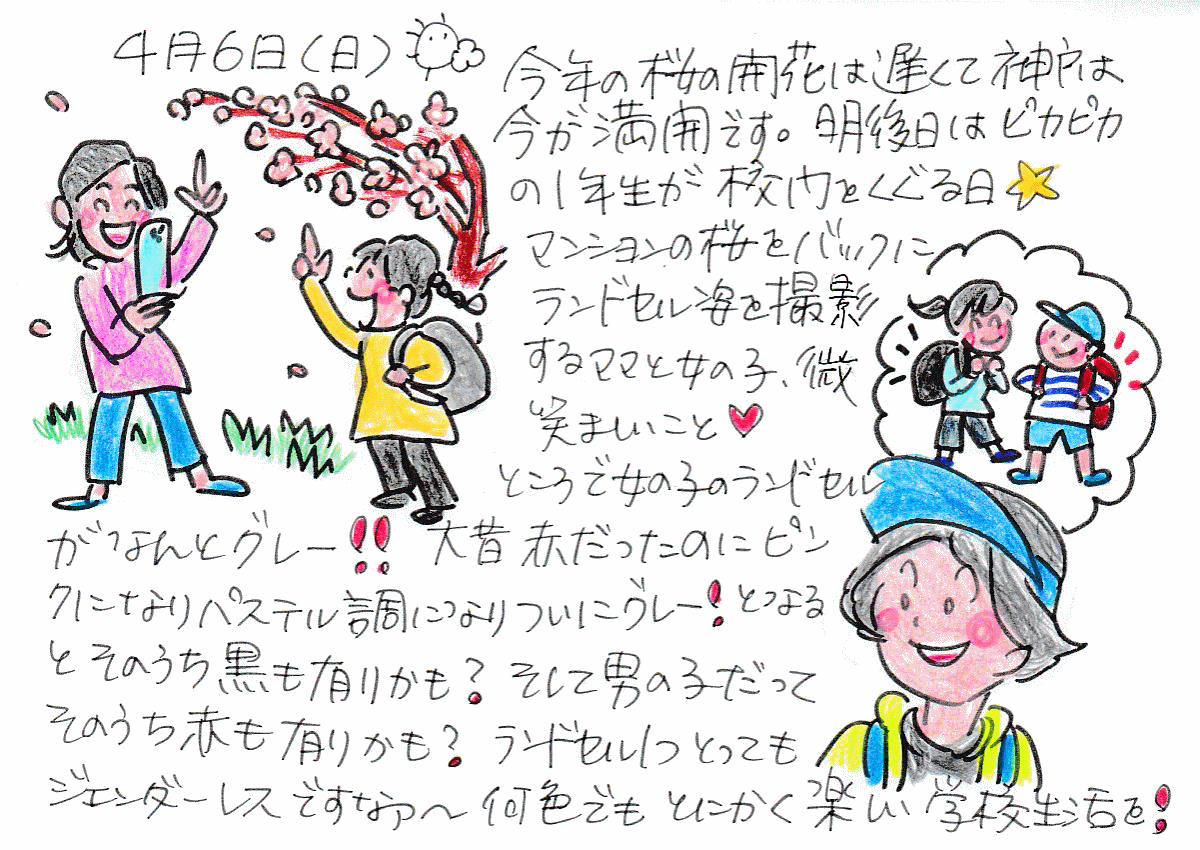 4月6日(日)
今年の桜の開花は遅くて神戸は
今が満開です。明後日はピカピカ
の1年生が校内をくぐる日
マンションの桜をバックに
ランドセル姿を撮影
するママと女の子、微
笑ましいこと
ところで女の子のランドセル
がなんとグレー!! 大昔赤だったのにピン
クになりパステル調になりついにグレー!となる
とそのうち黒も有りかも?そして男の子だって
そのうち赤も有りかも?ランドセル1つとっても
ジェンダーレスですなァ〜何色でもとにかく楽しい学校生活を!